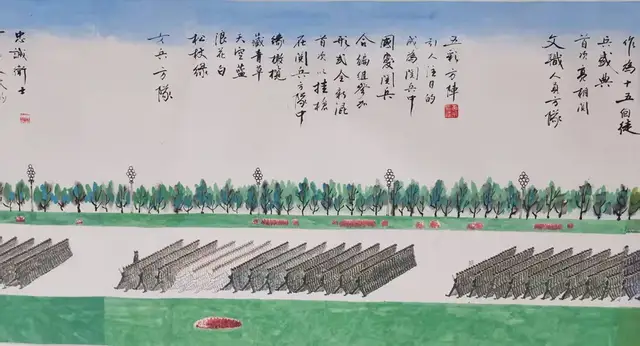 作為十五個徒
首次亮相閱
文職人員方隊
五彩方陣
引人注目的
成為閱兵中
國慶閱兵
合編組參加
形式全新混
首次以挂槍
在閱兵方隊中
藏青草
天空藍
浪花白
松枝綠
女兵方隊
忠誠衛士